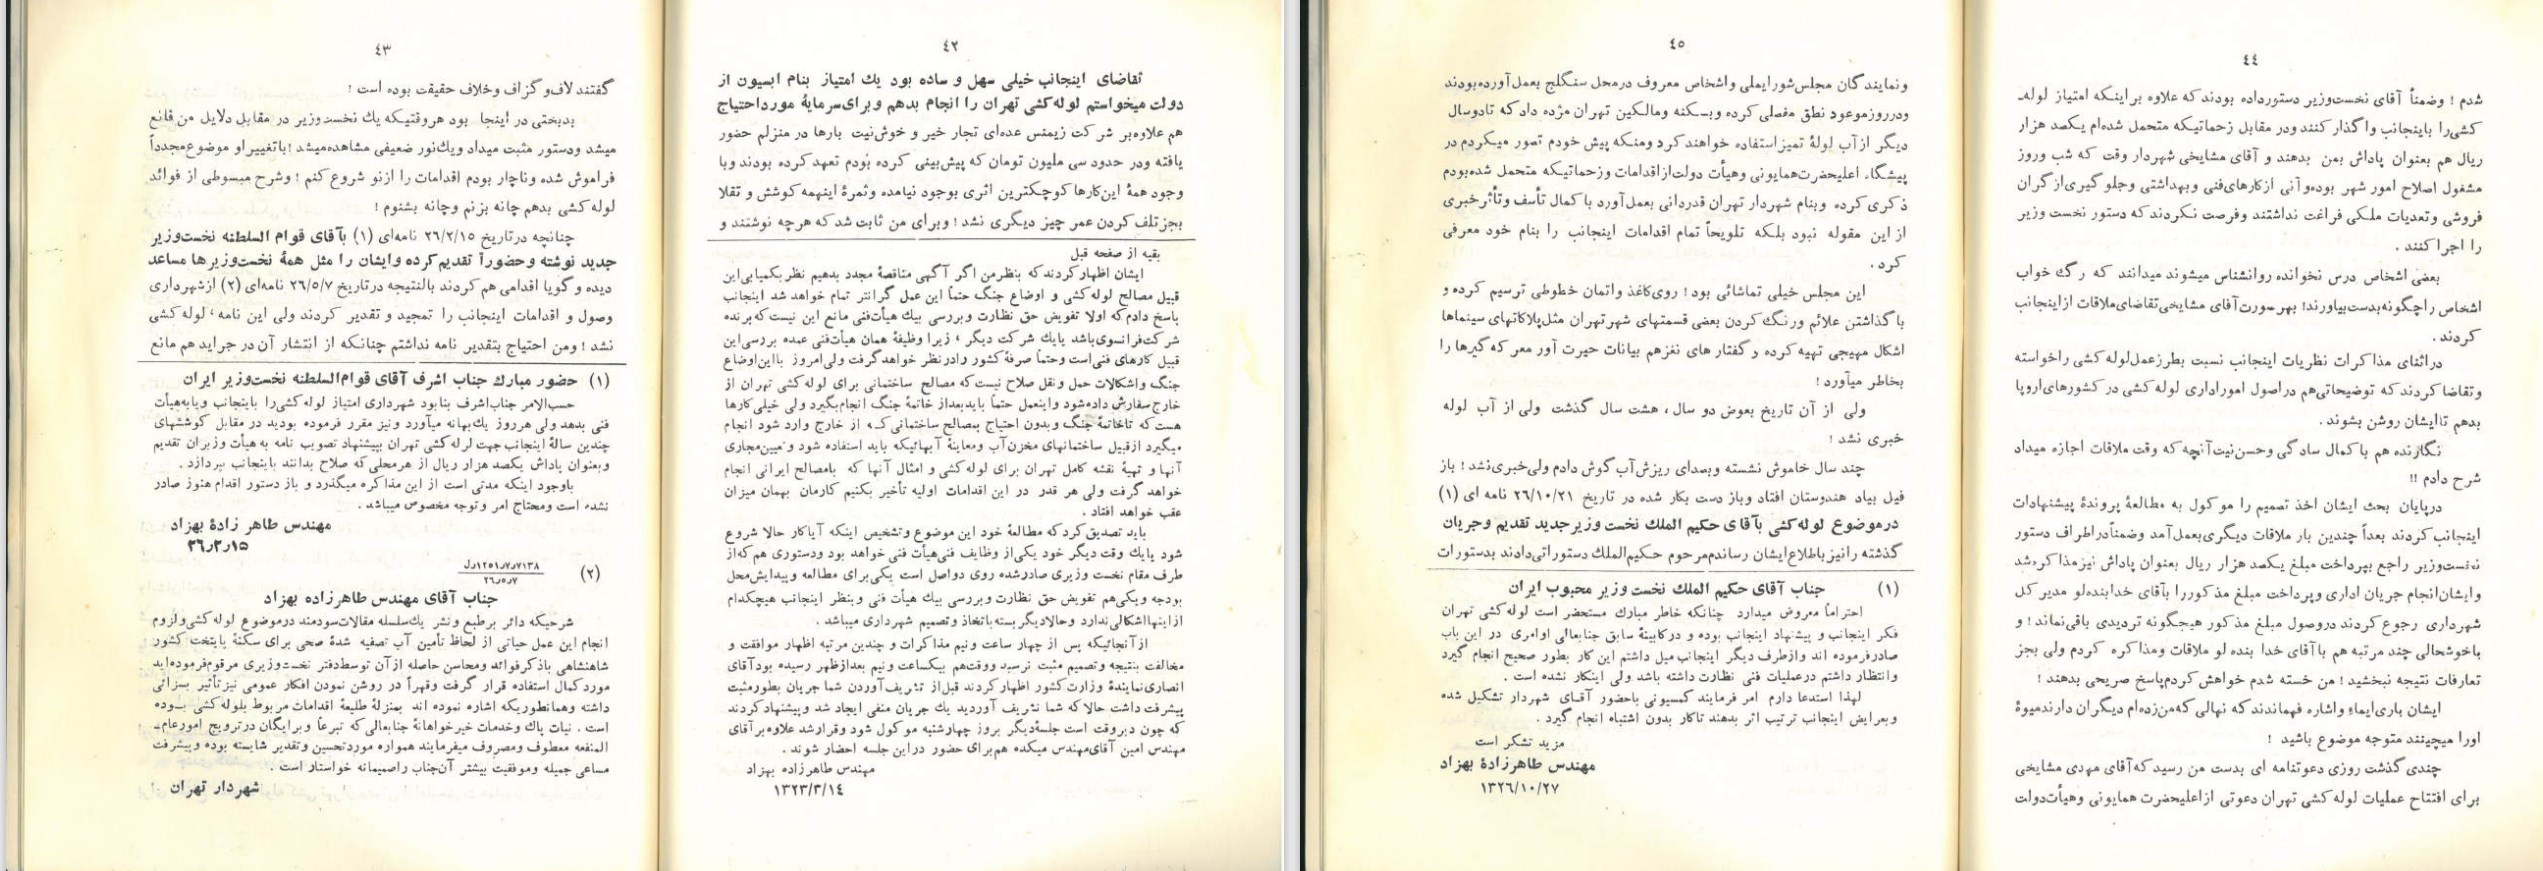 ٤٢
تقاضای اینجانب خیلی سهل و ساده بود یك امتیاز بنام ابسیون از
دولت میخواستم لوله کشی تهران را انجام بدهم وبرای سرمایهٔ مورد احتیاج
هم علاوه بر شرکت زیمنس عده‌ای تجار خیر و خوش‌نیت بارها در منزلم حضور
یافته ودر حدود سی ملیون تومان که پیش‌بینی کرده بودم تعهد کرده بودند وبا
وجود همهٔ این کارها کوچکترین اثری بوجود نیامده وثمرهٔ اینهمه کوشش و تقلا
بجز تلف کردن عمر چیز دیگری نشد ! وبرای من ثابت شد که هرچه نوشتند و
بقیه از صفحه قبل
ایشان اظهار کردند که بنظر من اگر آگهی مناقصهٔ مجدد بدهیم نظر بکمیابی این
قبیل مصالح لوله کشی و اوضاع جنگ حتماً این عمل گرانتر تمام خواهد شد اینجانب
پاسخ دادم که اولا تفویض حق نظارت و بررسی بیك هیأت فنی مانع این نیست که برنده
شرکت فرانسوی باشد یا یك شرکت دیگر ، زیرا وظیفهٔ همان هیأت فنی عمده بررسی این
قبیل کارهای فنی است وحتماً صرفهٔ کشور را در نظر خواهد گرفت ولی امروز با این اوضاع
جنگ واشکالات حمل و نقل صلاح نیست که مصالح ساختمانی برای لوله کشی تهران از
خارج سفارش داده شود واینعمل حتماً باید بعد از خاتمهٔ جنگ انجام بگیرد ولی خیلی کارها
هست که تا خاتمهٔ جنگ وبدون احتیاج بمصالح ساختمانی که از خارج وارد شود انجام
میگیرد از قبیل ساختمانهای مخزن آب ومعاینهٔ آبهائیکه باید استفاده شود وتعیین مجاری
آنها و تهیهٔ نقشه کامل تهران برای لوله کشی و امثال آنها که با مصالح ایرانی انجام
خواهد گرفت ولی هر قدر در این اقدامات اولیه تأخیر بکنیم کارمان بهمان میزان
عقب خواهد افتاد .
باید تصدیق کرد که مطالعهٔ خود این موضوع وتشخیص اینکه آیا کار حالا شروع
شود یا یك وقت دیگر خود یکی از وظایف فنی هیأت فنی خواهد بود ودستوری هم که از
طرف مقام نخست وزیری صادر شده روی دو اصل است یکی برای مطالعه و پیدایش محل
بودجه ویکی هم تفویض حق نظارت وبررسی بیك هیأت فنی وبنظر اینجانب هیچکدام
از اینها اشکالی ندارد وحالا دیگر بسته باتخاذ وتصمیم شهرداری میباشد .
از آنجائیکه پس از چهار ساعت ونیم مذاکرات و چندین مرتبه اظهار موافقت و
مخالفت بنتیجه وتصمیم مثبت نرسید ووقت هم بیکساعت ونیم بعد از ظهر رسیده بود آقای
انصاری نمایندهٔ وزارت کشور اظهار کردند قبل از تشریف آوردن شما جریان بطور مثبت
پیشرفت داشت حالا که شما تشریف آوردید یك جریان منفی ایجاد شد وپیشنهاد کردند
که چون دیروقت است جلسهٔ دیگر بروز چهارشنبه موکول شود وقرار شد علاوه بر آقای
مهندس امین آقای مهندس میکده هم برای حضور در این جلسه احضار شوند .
مهندس طاهرزاده بهزاد
۱۳۲۳/۳/۱٤
٤٣
گفتند لاف و گزاف وخلاف حقیقت بوده است !
بدبختی در اینجا بود هروقتیکه یك نخست وزیر در مقابل دلایل من قانع
میشد ودستور مثبت میداد ویك نور ضعیفی مشاهده میشد ! با تغییر او موضوع مجدداً
فراموش شده وناچار بودم اقدامات را از نو شروع کنم ! وشرح مبسوطی از فوائد
لوله کشی بدهم چانه بزنم وچانه بشنوم !
چنانچه در تاریخ ۲۶/۲/۱۵ نامه‌ای (۱) بآقای قوام السلطنه نخست وزیر
جدید نوشته وحضوراً تقدیم کرده وایشان را مثل همهٔ نخست وزیرها مساعد
دیده و گویا اقدامی هم کردند بالنتیجه در تاریخ ۲۶/۵/۷ نامه‌ای (۲) از شهرداری
وصول و اقدامات اینجانب را تمجید و تقدیر کردند ولی این نامه ، لوله کشی
نشد ! ومن احتیاج بتقدیر نامه نداشتم چنانکه از انتشار آن در جراید هم مانع
(۱) حضور مبارك جناب اشرف آقای قوام السلطنه نخست وزیر ایران
حسب الامر جناب اشرف بنابود شهرداری امتیاز لوله کشی را باینجانب ویا به هیأت
فنی بدهد ولی هر روز یك بهانه میآورد ونیز مقرر فرموده بودید در مقابل کوششهای
چندین سالهٔ اینجانب جهت لوله کشی تهران پیشنهاد تصویب نامه به هیأت وزیران تقدیم
وبعنوان پاداش یکصد هزار ریال از هر محلی که صلاح بدانند باینجانب بپردازد .
باوجود اینکه مدتی است از این مذاکره میگذرد و باز دستور اقدام هنوز صادر
نشده است ومحتاج امر وتوجه مخصوص میباشد .
مهندس طاهر زادهٔ بهزاد
۲۶٫۲٫۱۵
(۲)
۲۶٫۵٫۷
جناب آقای مهندس طاهرزاده بهزاد
شرحیکه دائر بر طبع و نشر یك سلسله مقالات سودمند در موضوع لوله کشی ولزوم
انجام این عمل حیاتی از لحاظ تأمین آب تصفیه شدهٔ صحی برای سکنهٔ پایتخت کشور
شاهنشاهی با ذکر فوائد ومحاسن حاصله از آن توسط دفتر نخست وزیری مرقوم فرموده اید
مورد کمال استفاده قرار گرفت وقهراً در روشن نمودن افکار عمومی نیز تأثیر بسزائی
داشته وهمانطوریکه اشاره نموده اند بمنزلهٔ طلیعهٔ اقدامات مربوط بلوله کشی بوده
است . نیات پاك وخدمات خیرخواهانهٔ جنابعالی که تبرعاً وبرایگان در ترویج امور عام‌ـ
المنفعه معطوف ومصروف میفرمایند همواره مورد تحسین وتقدیر شایسته بوده وپیشرفت
مساعی جمیله وموفقیت بیشتر آن جناب را صمیمانه خواستار است .
شهردار تهران
٤٤
شدم ! وضمناً آقای نخست وزیر دستور داده بودند که علاوه بر اینکه امتیاز لوله‌ـ
کشی را باینجانب واگذار کنند ودر مقابل زحماتیکه متحمل شده‌ام یکصد هزار
ریال هم بعنوان پاداش بمن بدهند و آقای مشایخی شهردار وقت که شب وروز
مشغول اصلاح امور شهر بوده وآنی از کارهای فنی وبهداشتی وجلوگیری از گران
فروشی وتعدیات ملکی فراغت نداشتند وفرصت نکردند که دستور نخست وزیر
را اجرا کنند .
بعضی اشخاص درس نخوانده روانشناس میشوند میدانند که رگ خواب
اشخاص را چگونه بدست بیاورند! بهر صورت آقای مشایخی تقاضای ملاقات از اینجانب
کردند .
در اثنای مذاکرات نظریات اینجانب نسبت بطرز عمل لوله کشی را خواسته
وتقاضا کردند که توضیحاتی هم در اصول امور اداری لوله کشی در کشورهای اروپا
بدهم تا ایشان روشن بشوند .
نگارنده هم با کمال سادگی وحسن نیت آنچه که وقت ملاقات اجازه میداد
شرح دادم !!
در پایان بحث ایشان اخذ تصمیم را موکول به مطالعهٔ پروندهٔ پیشنهادات
اینجانب کردند بعداً چندین بار ملاقات دیگری بعمل آمد وضمناً در اطراف دستور
نخست وزیر راجع بپرداخت مبلغ یکصد هزار ریال بعنوان پاداش نیز مذاکره شد
وایشان انجام جریان اداری وپرداخت مبلغ مذکور را بآقای خدابنده لو مدیر کل
شهرداری رجوع کردند در وصول مبلغ مذکور هیچگونه تردیدی باقی نماند ! و
با خوشحالی چند مرتبه هم با آقای خدا بنده لو ملاقات ومذاکره کردم ولی بجز
تعارفات نتیجه نبخشید ! من خسته شدم خواهش کردم پاسخ صریحی بدهند !
ایشان باری ایماء واشاره فهماندند که نهالی که من زده‌ام دیگران دارند میوهٔ
اورا میچینند متوجه موضوع باشید !
چندی گذشت روزی دعوتنامه ای بدست من رسید که آقای مهدی مشایخی
برای افتتاح عملیات لوله کشی تهران دعوتی از اعلیحضرت همایونی وهیأت دولت
٤٥
ونمایندگان مجلس شورایملی واشخاص معروف در محل سنگلج بعمل آورده بودند
ودر روز موعود نطق مفصلی کرده وبسکنه ومالکین تهران مژده داد که تا دو سال
دیگر از آب لولهٔ تمیز استفاده خواهند کرد ومنکه پیش خودم تصور میکردم در
پیشگاه اعلیحضرت همایونی وهیأت دولت از اقدامات وزحماتیکه متحمل شده بودم
ذکری کرده وبنام شهردار تهران قدردانی بعمل آورد با کمال تأسف وتأثر خبری
از این مقوله نبود بلکه تلویحاً تمام اقدامات اینجانب را بنام خود معرفی
کرد .
این مجلس خیلی تماشائی بود ! روی کاغذ واتمان خطوطی ترسیم کرده و
با گذاشتن علائم ورنگ کردن بعضی قسمتهای شهر تهران مثل پلاکاتهای سینماها
اشکال مهیجی تهیه کرده و گفتار های نغزهم بیانات حیرت آور معرکه گیرها را
بخاطر میآورد !
ولی از آن تاریخ بعوض دو سال ، هشت سال گذشت ولی از آب لوله
خبری نشد !
چند سال خاموش نشسته وبصدای ریزش آب گوش دادم ولی خبری نشد ! باز
فیل بیاد هندوستان افتاد وباز دست بکار شده در تاریخ ۲۶/۱۰/۲۱ نامه ای (۱)
در موضوع لوله کشی بآقای حکیم الملك نخست وزیر جدید تقدیم وجریان
گذشته را نیز باطلاع ایشان رساندم مرحوم حکیم الملك دستوراتی دادند بدستورات
(۱) جناب آقای حکیم الملك نخست وزیر محبوب ایران
احتراماً معروض میدارد چنانکه خاطر مبارك مستحضر است لوله کشی تهران
فکر اینجانب و پیشنهاد اینجانب بوده و در کابینهٔ سابق جنابعالی اوامری در این باب
صادر فرموده اند واز طرف دیگر اینجانب میل داشتم این کار بطور صحیح انجام گیرد
وانتظار داشتم در عملیات فنی نظارت داشته باشد ولی اینکار نشده است .
لهذا استدعا دارم امر فرمایند کمسیونی با حضور آقای شهردار تشکیل شده
وبعرایض اینجانب ترتیب اثر بدهند تا کار بدون اشتباه انجام گیرد .
مزید تشکر است
مهندس طاهرزادهٔ بهزاد
۱۳۲۶/۱۰/۲۷